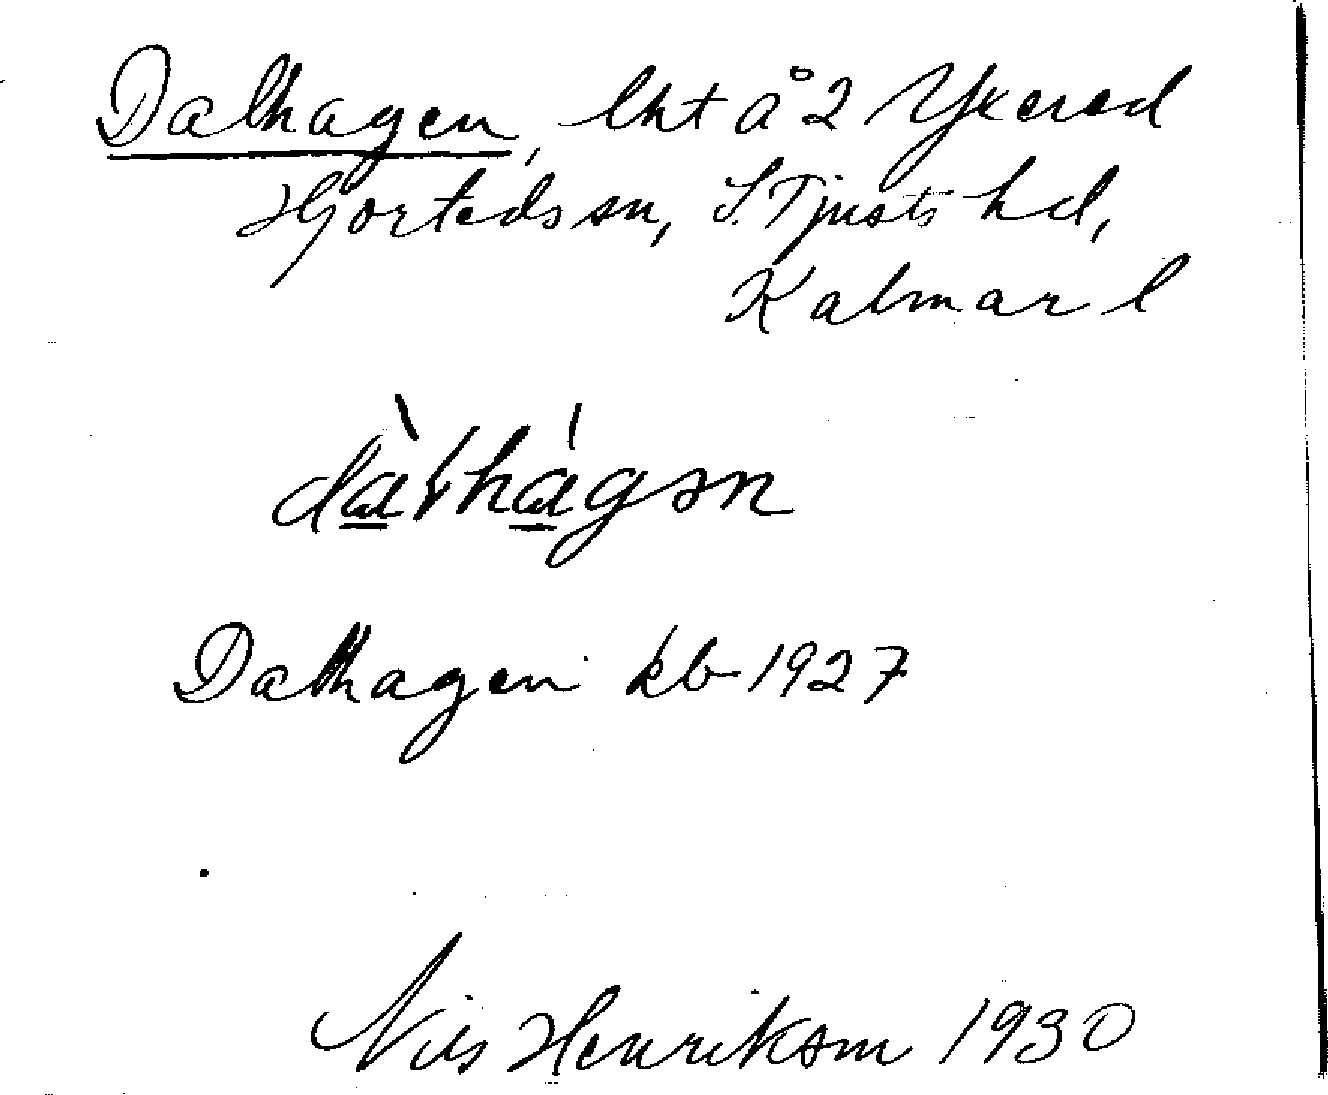 Dalhagen, lht å 2 Ykerod
Hjorteds sn, S. Tjusts hd,
Kalmar l
dàlhágən
Dalhagen kb 1927
Nils Henrikson 1930